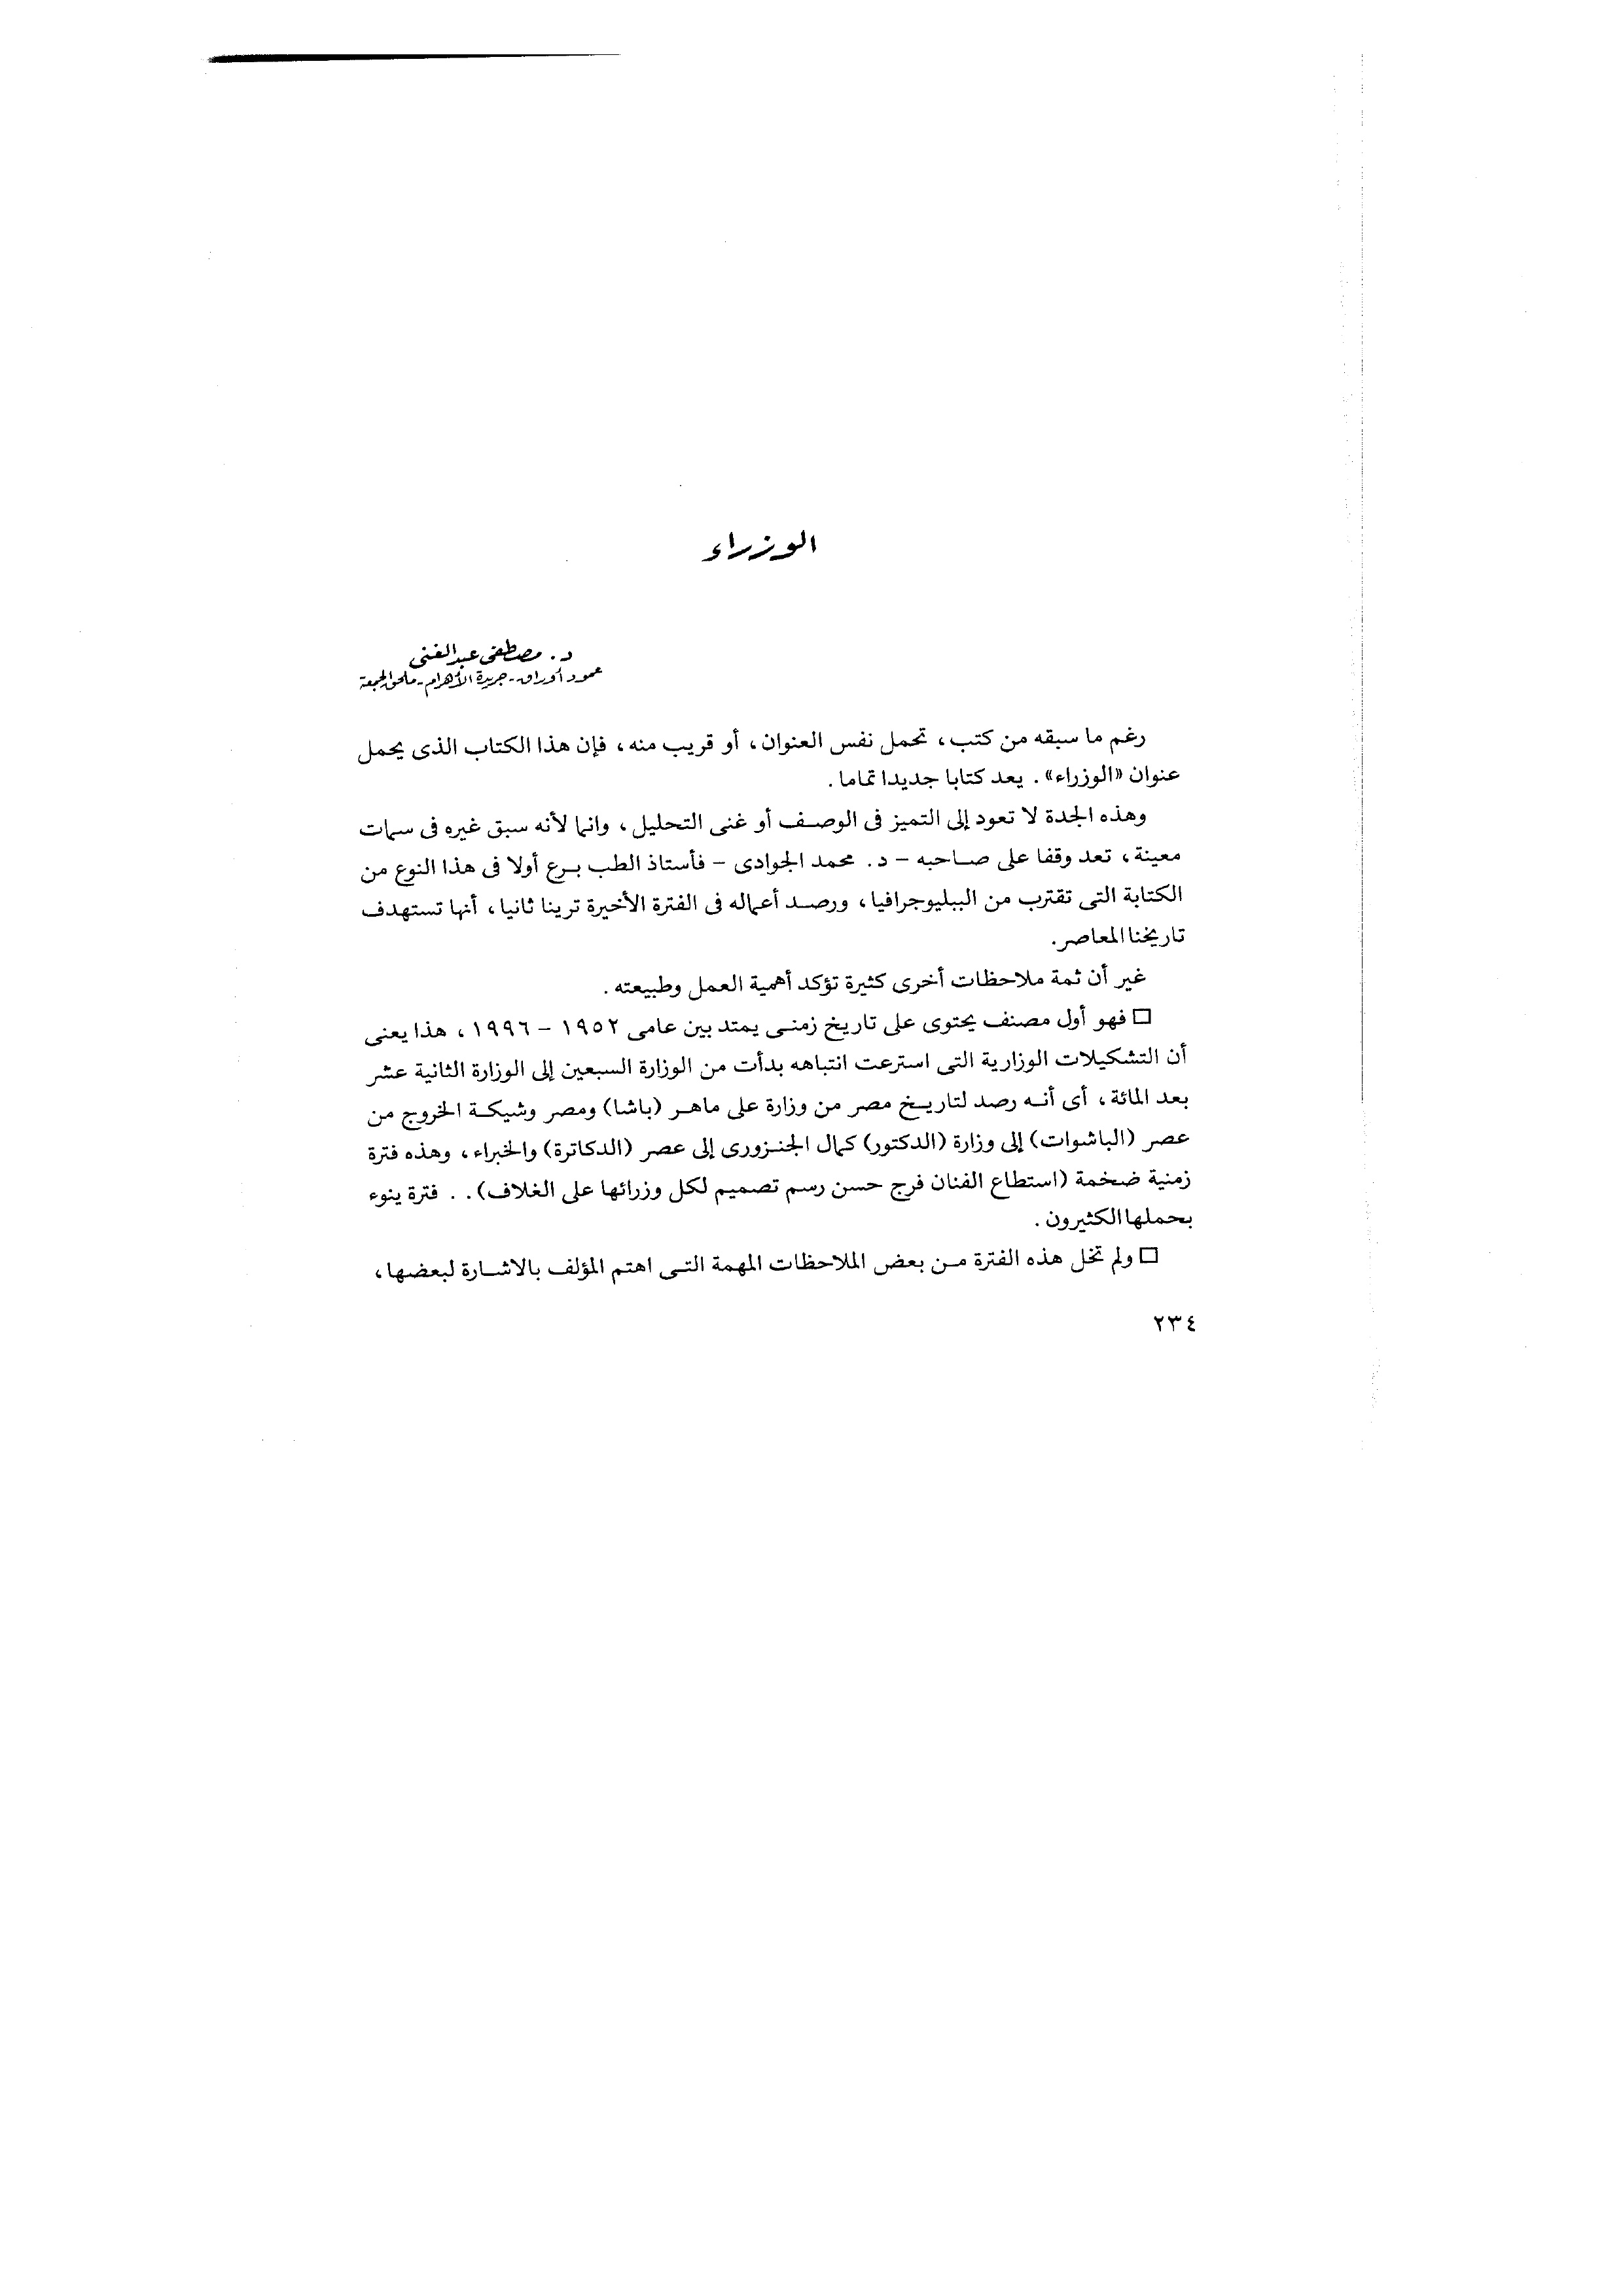 الوزراء
د. مصطفى عبدالغنى
عمود أوراق - جريدة الأهرام - ملحق الجمعة
رغم ما سبقه من كتب، تحمل نفس العنوان، أو قريب منه، فإن هذا الكتاب الذى يحمل
عنوان «الوزراء». يعد كتابا جديدا تماما.
وهذه الجدة لا تعود إلى التميز فى الوصف أو غنى التحليل، وانما لأنه سبق غيره فى سمات
معينة، تعد وقفا على صاحبه - د. محمد الجوادى - فأستاذ الطب برع أولا فى هذا النوع من
الكتابة التى تقترب من الببليوجرافيا، ورصد أعماله فى الفترة الأخيرة ترينا ثانيا، أنها تستهدف
تاريخنا المعاصر.
غير أن ثمة ملاحظات أخرى كثيرة تؤكد أهمية العمل وطبيعته.
□ فهو أول مصنف يحتوى على تاريخ زمنى يمتد بين عامى ١٩٥٢ - ١٩٩٦، هذا يعنى
أن التشكيلات الوزارية التى استرعت انتباهه بدأت من الوزارة السبعين إلى الوزارة الثانية عشر
بعد المائة، أى أنه رصد لتاريخ مصر من وزارة على ماهر (باشا) ومصر وشيكة الخروج من
عصر (الباشوات) إلى وزارة (الدكتور) كمال الجنزورى إلى عصر (الدكاترة) والخبراء، وهذه فترة
زمنية ضخمة (استطاع الفنان فرج حسن رسم تصميم لكل وزرائها على الغلاف).. فترة ينوء
بحملها الكثيرون.
□ ولم تخل هذه الفترة من بعض الملاحظات المهمة التى اهتم المؤلف بالاشارة لبعضها،
٢٣٤